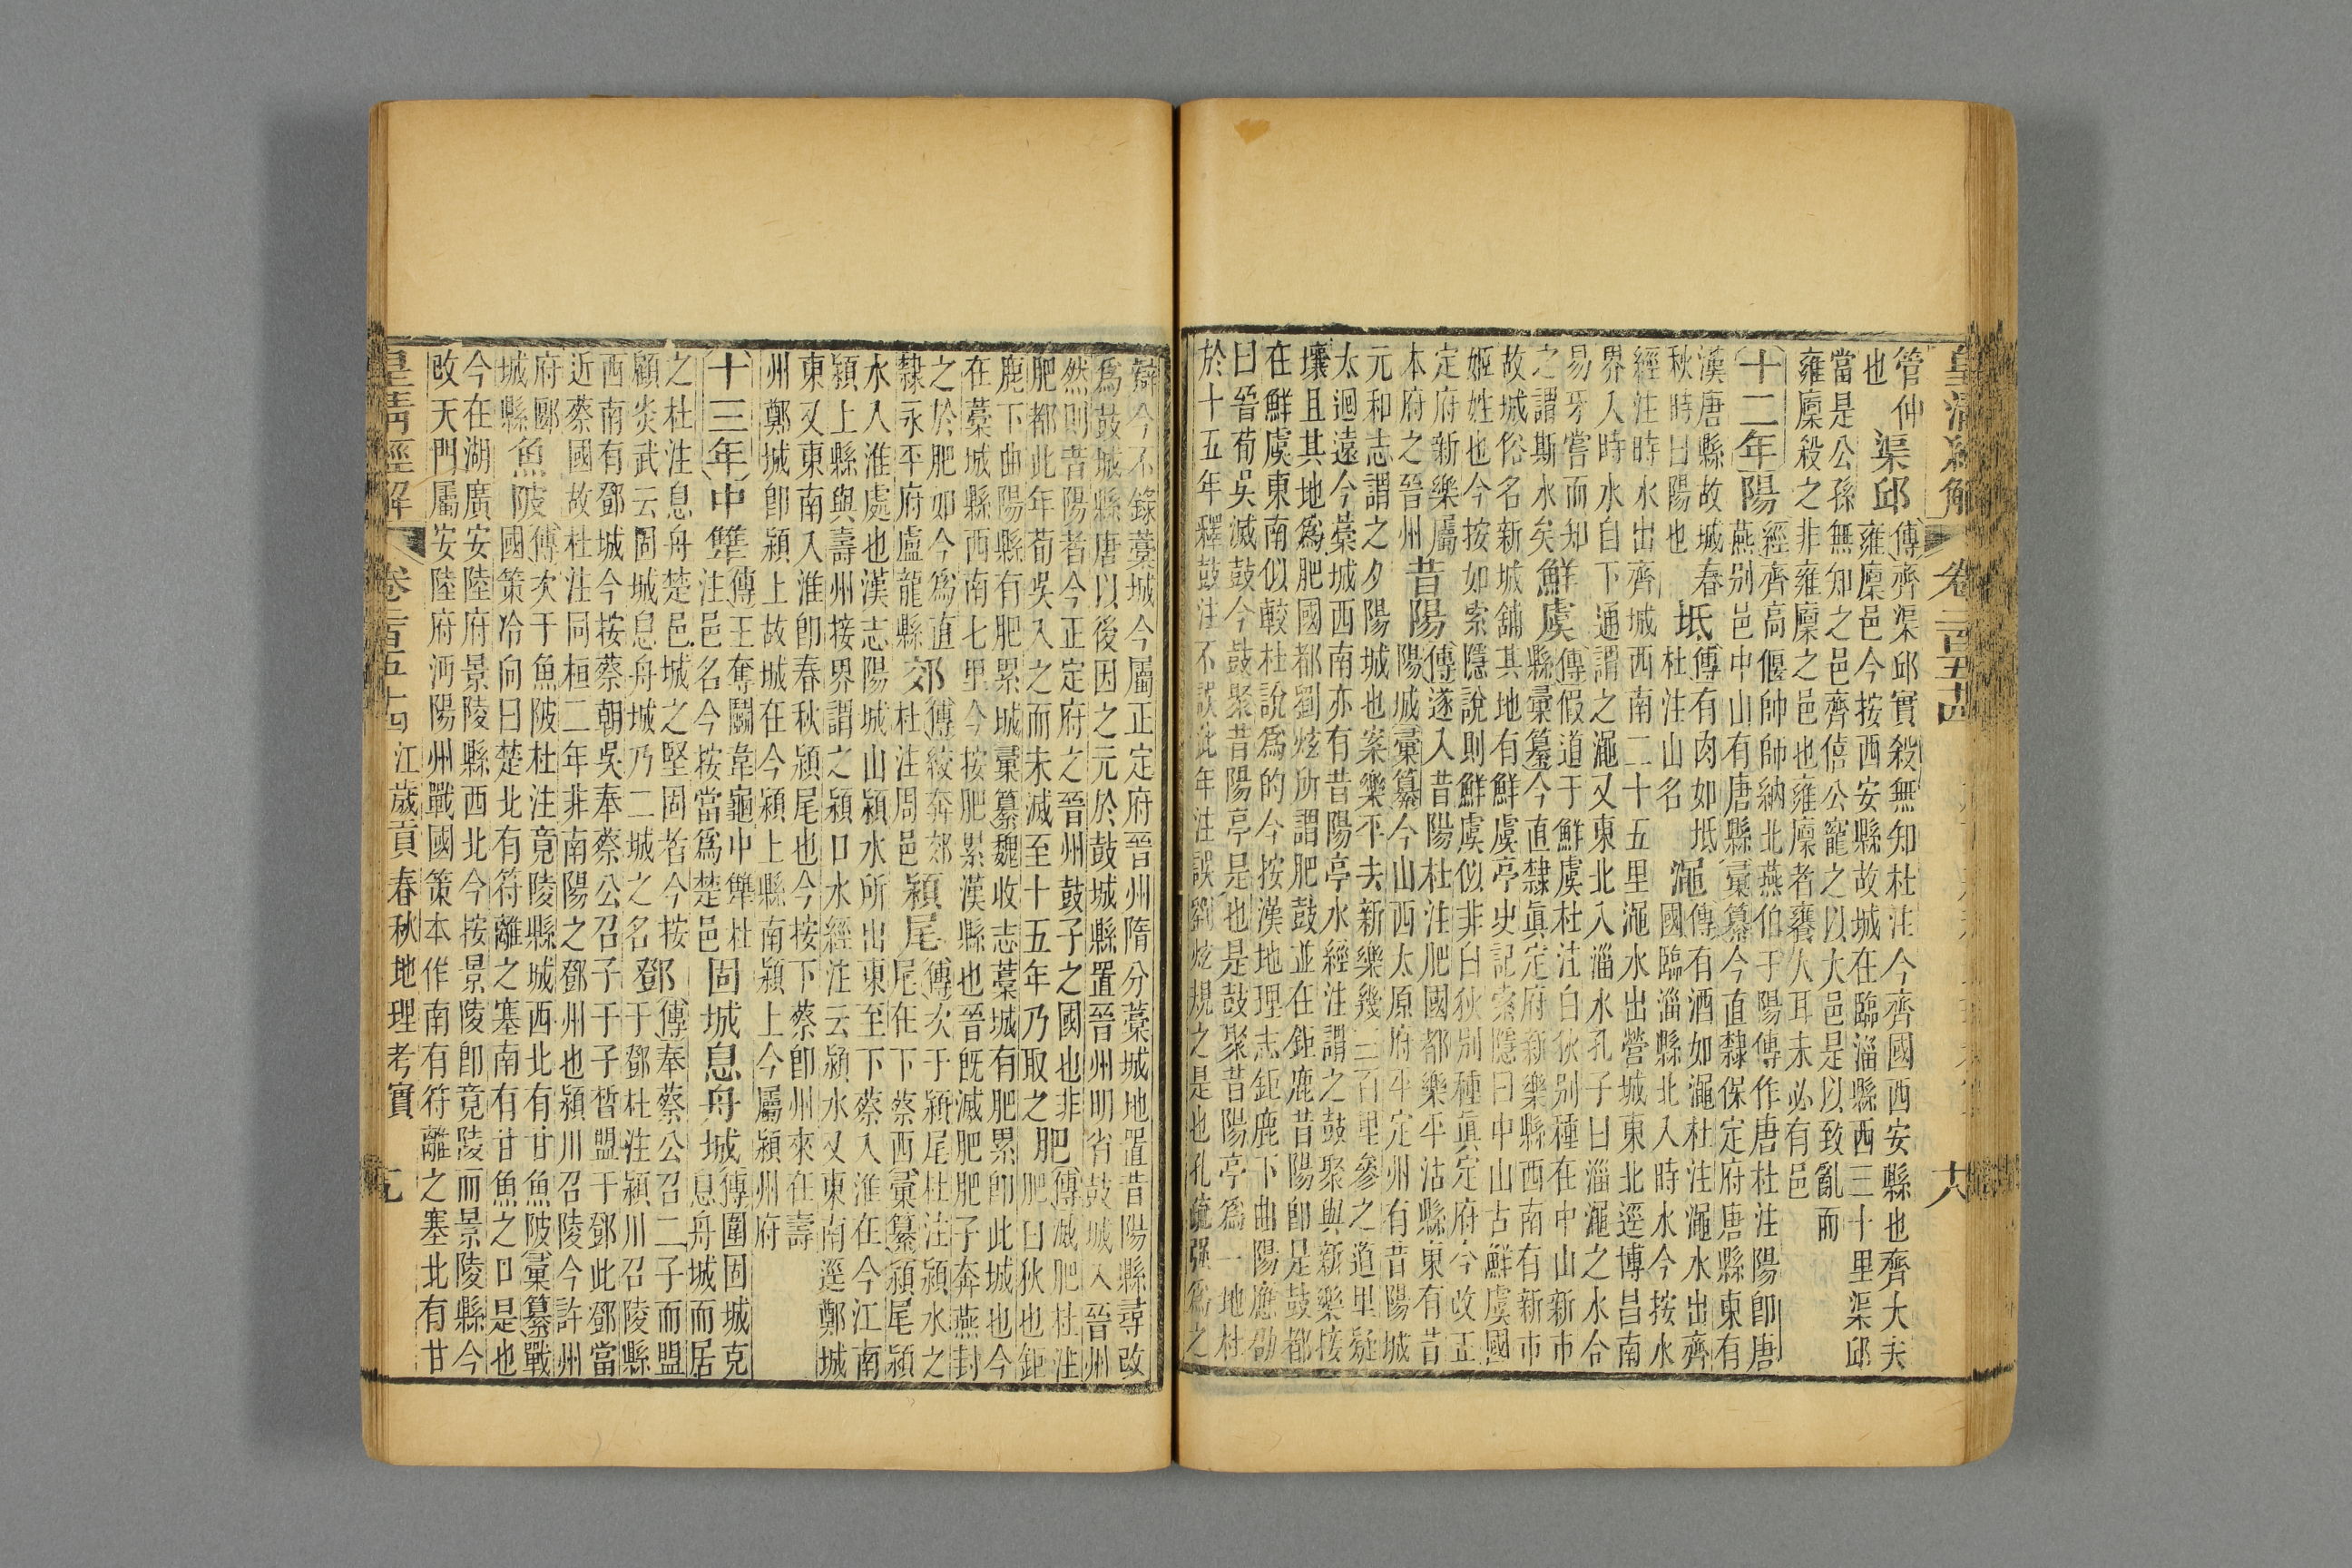 皇清經解 卷二百五十四
管仲 渠邱 傳齊渠邱實殺無知杜注今齊國西安縣也齊大夫
也 雍廩邑今按西安縣故城在臨淄縣西三十里渠邱
當是公孫無知之邑齊僖公寵之以大邑是以致亂而
雍廩殺之非雍廩之邑也雍廩者饔人耳未必有邑
十二年 陽 經齊高偃帥師納北燕伯于陽傳作唐杜注陽卽唐
燕別邑中山有唐縣彙纂今直隸保定府唐縣東有
漢唐縣故城春 坻 傳有肉如坻 澠 傳有酒如澠杜注澠水出齊
秋時曰陽也 杜注山名 國臨淄縣北入時水今按水
經注時水出齊城西南二十五里澠水出營城東北逕博昌南
界入時水自下通謂之澠又東北入淄水孔子曰淄澠之水合
易牙嘗而知 鮮虞 傳假道于鮮虞杜注白狄別種在中山新市
之謂斯水矣 縣彙纂今直隸眞定府新樂縣西南有新市
故城俗名新城舖其地有鮮虞亭史記索隱曰中山古鮮虞國
姬姓也今按如索隱說則鮮虞似非白狄別種眞定府今改正
定府新樂屬 昔陽 傳遂入昔陽杜注肥國都樂平沾縣東有昔
本府之晉州 陽城彙纂今山西太原府平定州有昔陽城
元和志謂之夕陽城也案樂平去新樂幾三百里參之道里疑
太迴遠今藁城西南亦有昔陽亭水經注謂之鼓聚與新樂接
壤且其地爲肥國都劉炫所謂肥鼓並在鉅鹿昔陽卽是鼓都
在鮮虞東南似較杜說爲的今按漢地理志鉅鹿下曲陽應劭
曰晉荀吳滅鼓今鼓聚昔陽亭是也是鼓聚昔陽亭爲一地杜
於十五年釋鼓注不誤此年注誤劉炫規之是也孔疏强爲之
辯今不錄藁城今屬正定府晉州隋分藁城地置昔陽縣尋改
爲鼓城縣唐以後因之元於鼓城縣置晉州明省鼓城入晉州
然則昔陽者今正定府之晉州鼓子之國也非 肥 傳滅肥杜注
肥都此年荀吳入之而未滅至十五年乃取之 肥曰狄也鉅
鹿下曲陽縣有肥累城彙纂魏收志藁城有肥累卽此城也今
在藁城縣西南七里今按肥累漢縣也晉旣滅肥肥子奔燕封
之於肥如今爲直 郊 傳絞奔郊 潁尾 傳次于潁尾杜注潁水之
隸永平府盧龍縣 杜注周邑 尾在下蔡西彙纂潁尾潁
水入淮處也漢志陽城山潁水所出東至下蔡入淮在今江南
潁上縣與壽州接界謂之潁口水經注云潁水又東南逕鄭城
東又東南入淮卽春秋潁尾也今按下蔡卽州來在壽
州鄭城卽潁上故城在今潁上縣南潁上今屬潁州府
十三年 中犨 傳王奪鬬韋龜中犨杜 固城 息舟城 傳圍固城克
注邑名今按當爲楚邑 息舟城而居
之杜注息舟楚邑城之堅固者今按 鄧 傳奉蔡公召二子而盟
顧炎武云固城息舟城乃二城之名 于鄧杜注潁川召陵縣
西南有鄧城今按蔡朝吳奉蔡公召子干子晳盟于鄧此鄧當
近蔡國故杜注同桓二年非南陽之鄧州也潁川召陵今許州
府郾 魚陂 傳次于魚陂杜注竟陵縣城西北有甘魚陂彙纂戰
城縣 國策冷向曰楚北有符離之塞南有甘魚之口是也
今在湖廣安陸府景陵縣西北今按景陵卽竟陵而景陵縣今
改天門屬安陸府沔陽州戰國策本作南有符離之塞北有甘
皇清經解 卷二百五十四 江歲貢春秋地理考實